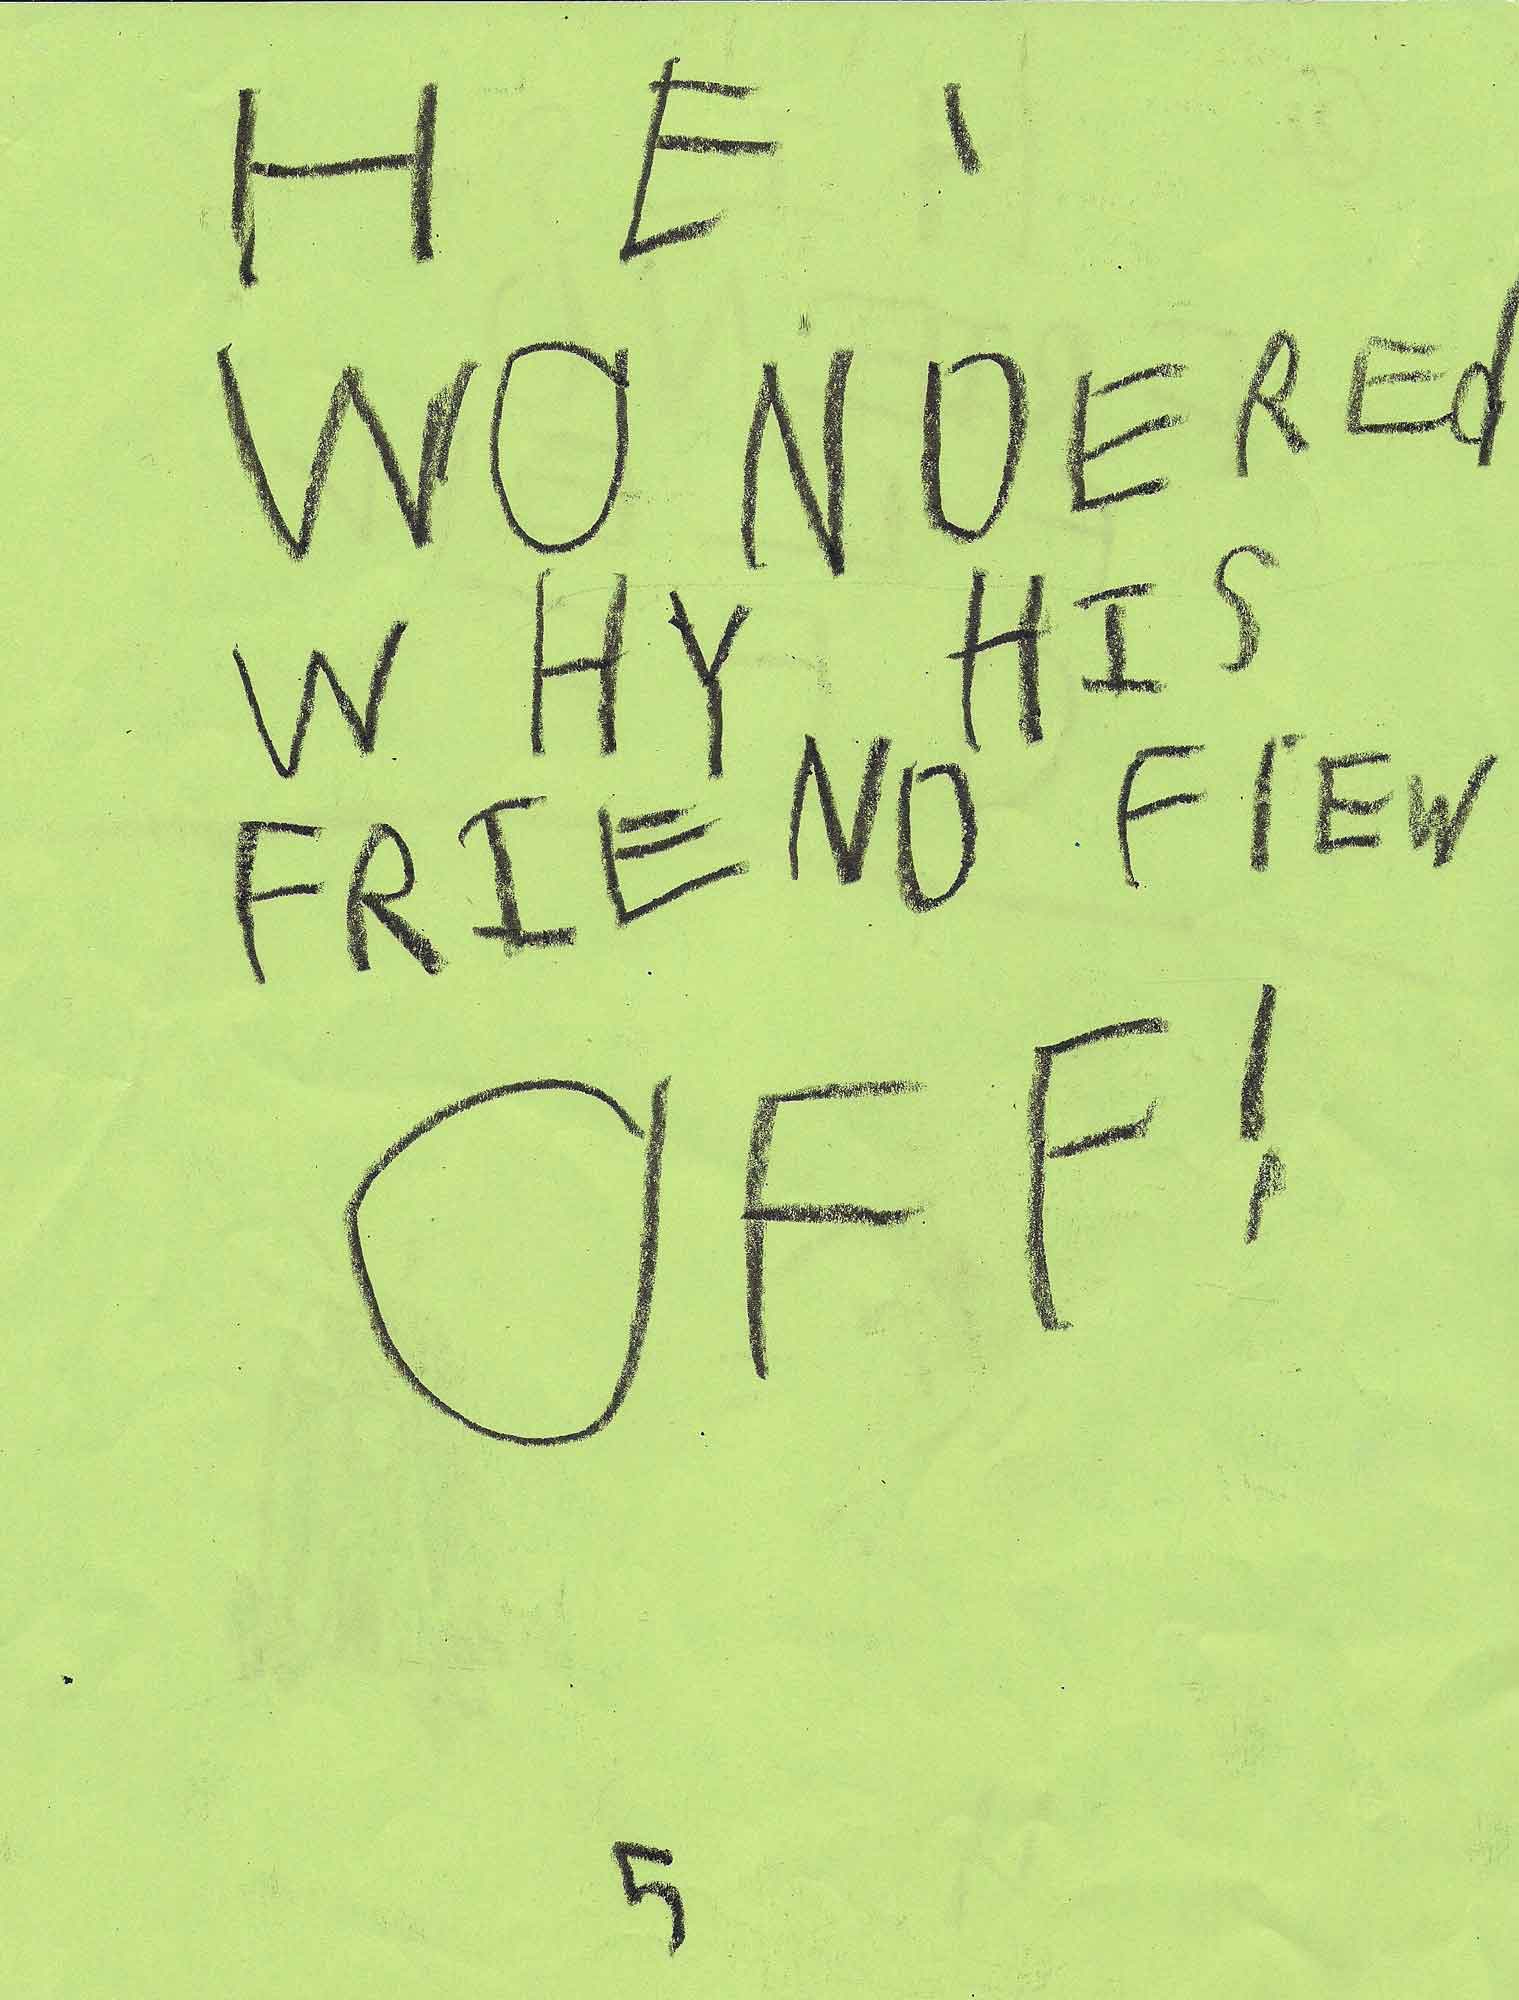 HE '
WONDEREd
WHY HIS
FRIEND FlEW
OFF!
5